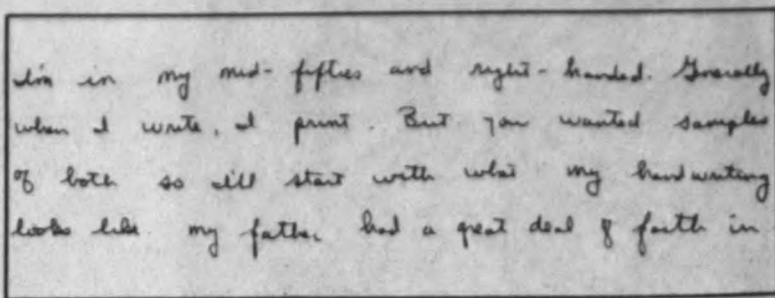 I'm in my mid-fifties and right-handed. Generally
when I write, I print. But you wanted samples
of both so I'll start with what my handwriting
looks like. My father had a great deal of faith in